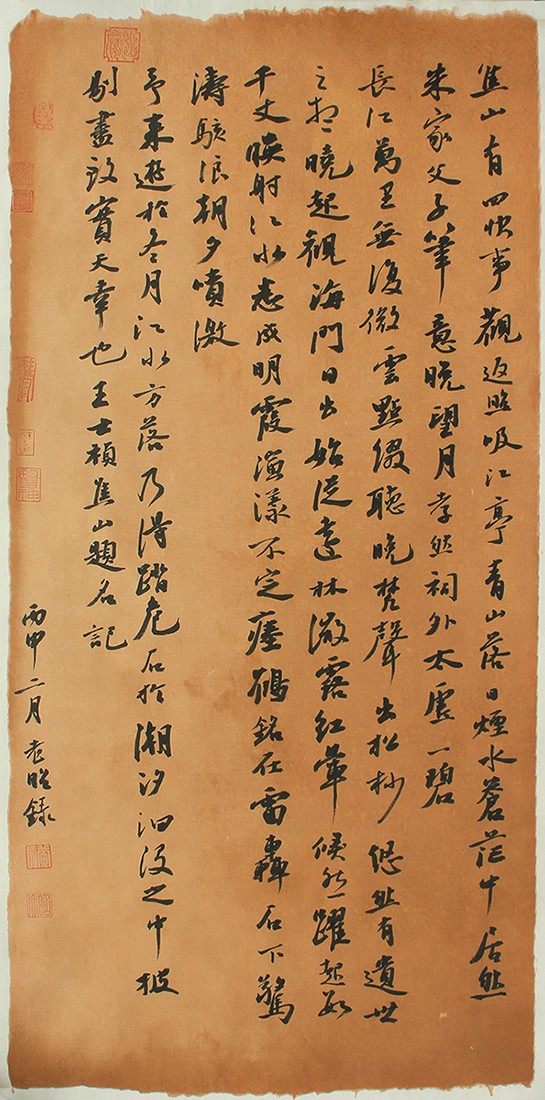 焦山有四快事觀返照吸江亭青山落日煙水蒼茫中居然
米家父子筆意晚望月孝然祠外太虛一碧
長江萬里無復微雲點綴聽晚梵聲出松杪悠然有遺世
之想曉起觀海門日出始從遠林微露紅暈倏然躍起數
千丈暎射江水悉成明霞演漾不定瘞鶴銘在雷轟石下驚
濤駭浪朝夕噴激
予來遊於冬月江水方落乃得踏危石於潮汐汩沒之中披
剔盡致實天幸也王士禎焦山題名記
丙申二月老昭錄